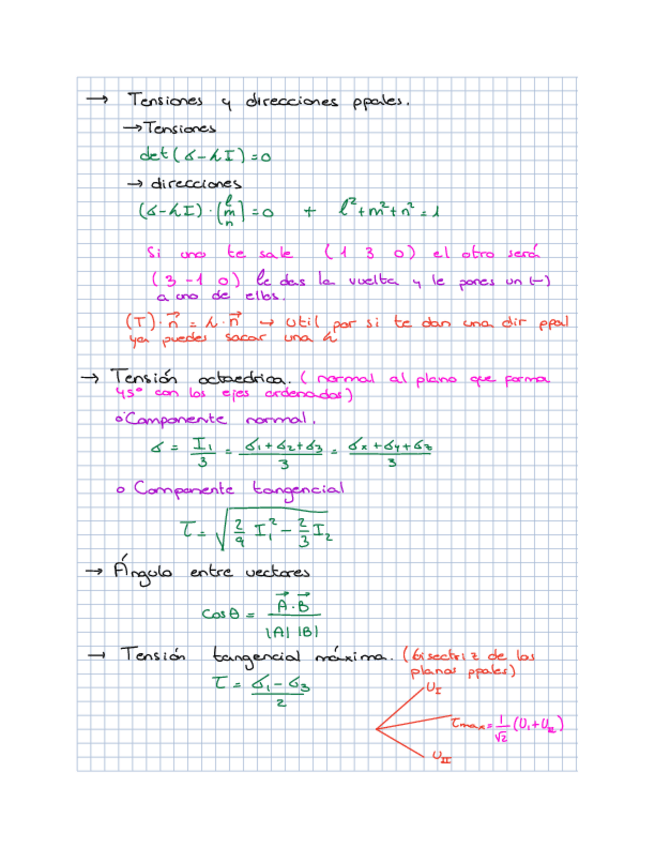 → Tensiones y direcciones ppales.
→ Tensiones
det(σ-λI)=0
→ direcciones
(σ-λI)·(l m n)=0 + l²+m²+n²=1
Si uno te sale (1 3 0) el otro será
(3 -1 0) le das la vuelta y le pones un (-)
a uno de ellos.
(T)·n⃗ = λ·n⃗ → util por si te dan una dir ppal
ya puedes sacar una λ
→ Tensión octaedrica. (normal al plano que forma
45° con los ejes ordenados)
o Componente normal.
σ = I₁/3 = (σ₁+σ₂+σ₃)/3 = (σx+σy+σz)/3
o Componente tangencial
τ = √(2/9 I₁² - 2/3 I₂)
→ Ángulo entre vectores
cosθ = A⃗·B⃗ / |A| |B|
→ Tensión tangencial máxima. (bisectriz de los
planos ppales)
τ = (σ₁-σ₃)/2
U_I
τmax = 1/√2 (U_I+U_III)
U_III